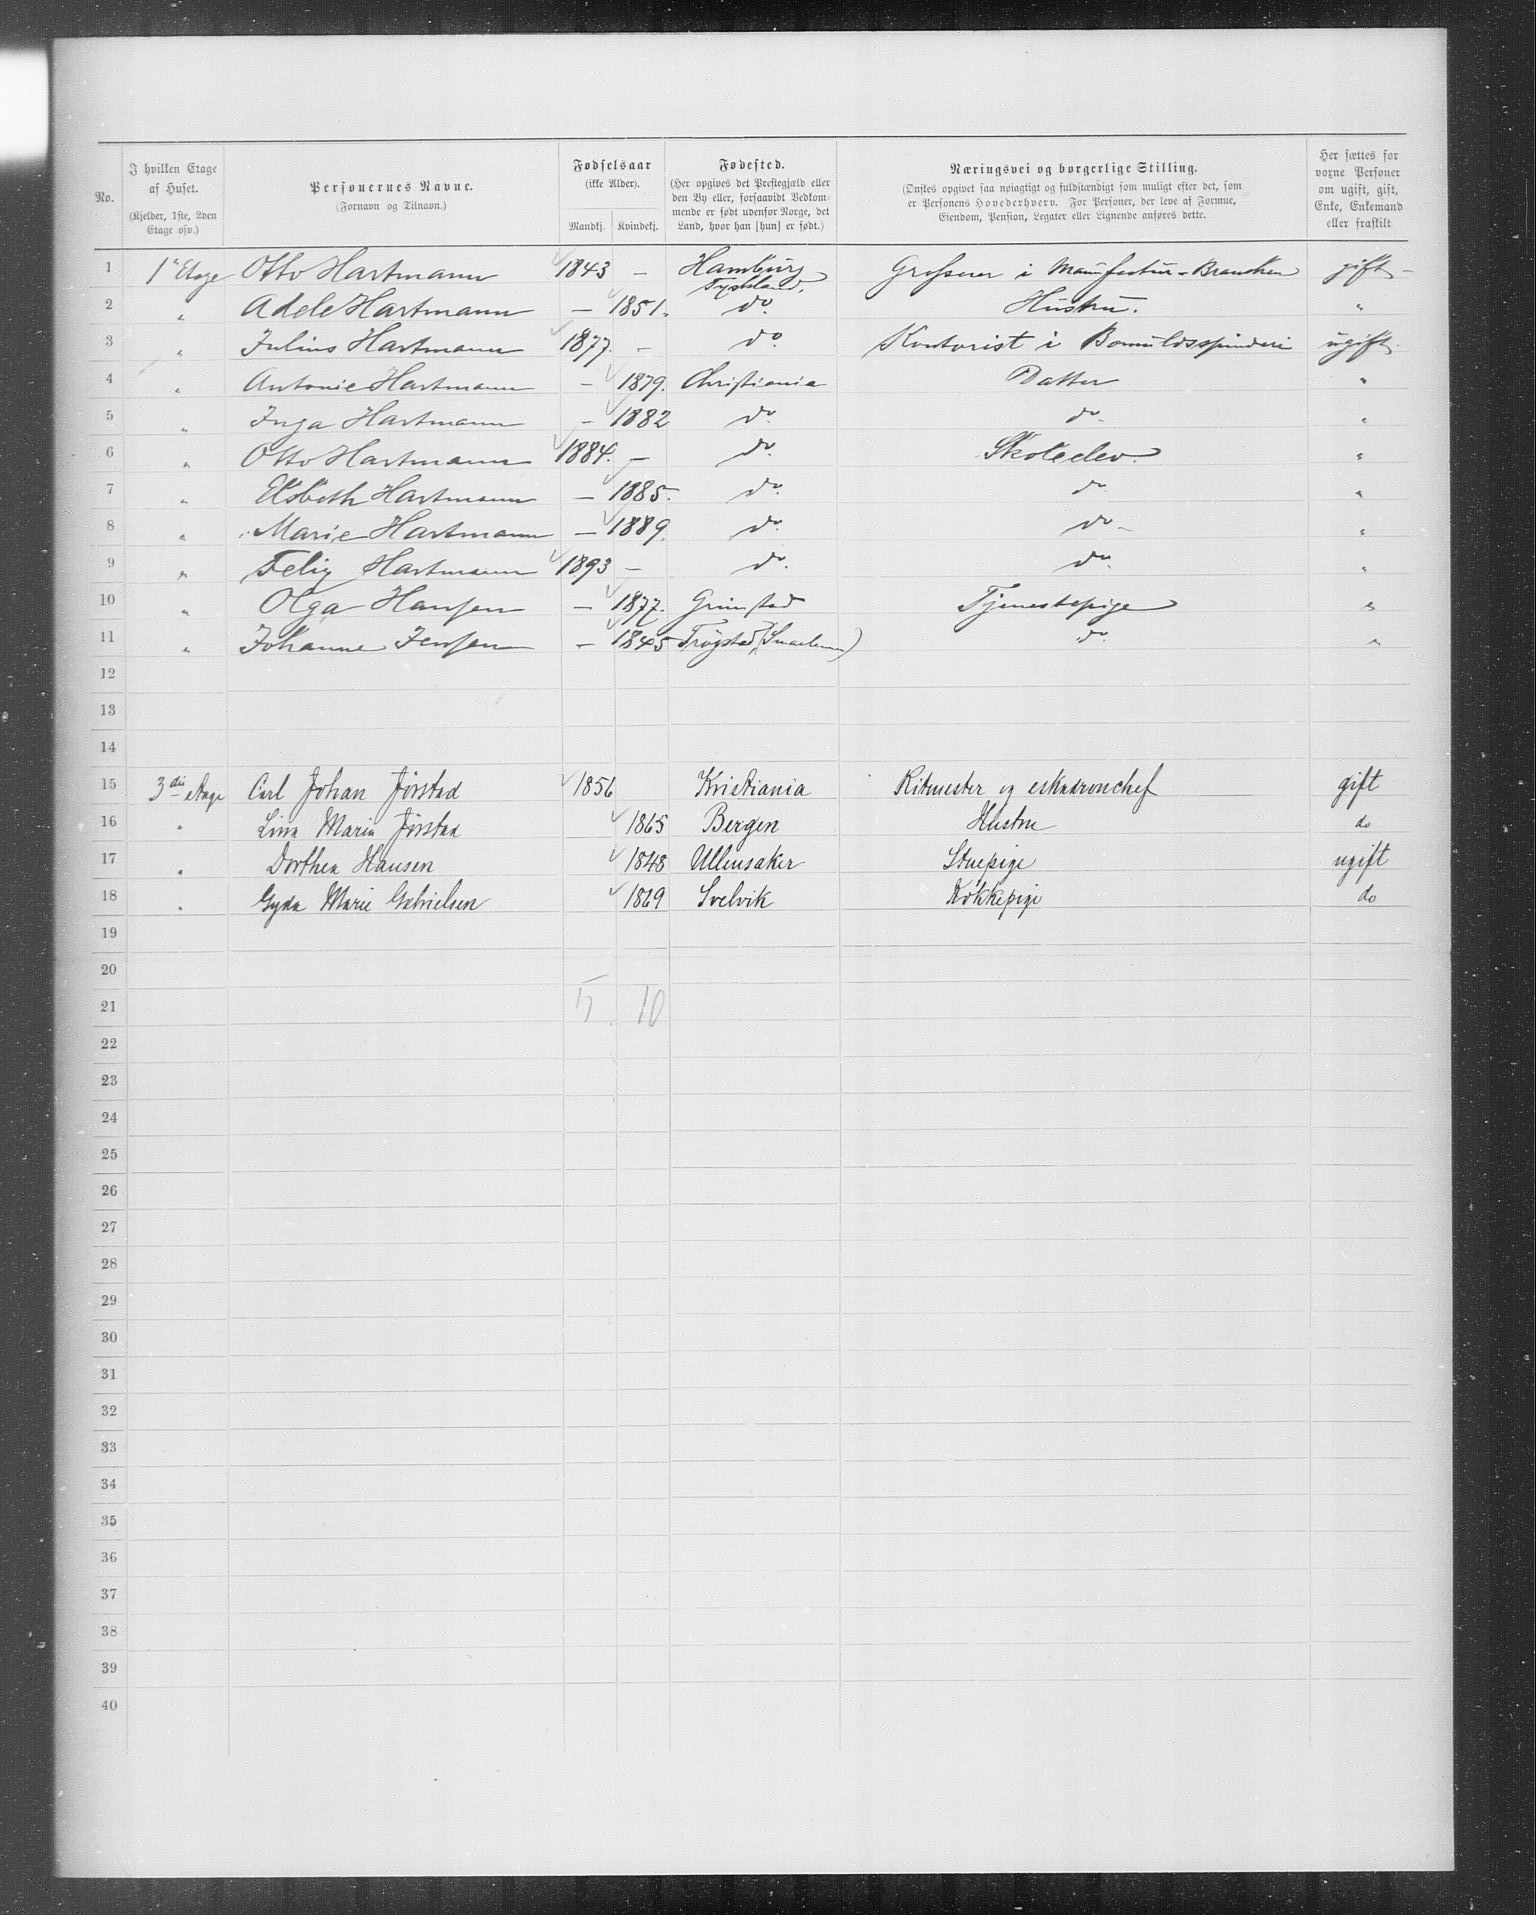 No. | I hvilken Etage af Huset. (Kjelder, 1ste, 2den Etage osv.) | Personernes Navne. (Fornavn og Tilnavn.) | Fødselsaar (ikke Alder). Mandkj. | Kvindekj. | Fødested. (Her opgives det Prestegjæld eller den By eller, forsaavidt Vedkommende er født udenfor Norge, det Land, hvor han [hun] er født.) | Næringsvei og borgerlige Stilling. (Ønskes opgivet saa nøiagtigt og fuldstændigt som muligt efter det, som er Personens Hovederhverv. For Personer, der leve af Formue, Eiendom, Pension, Legater eller Lignende anføres dette. | Her sættes for voxne Personer om ugift, gift, Enke, Enkemand eller fraskilt
1 | 1e Etage | Otto Hartmann | 1843 | – | Hamburg Tyskland. | Grosserer i Manufactur-Branchen | gift –
2 | " | Adele Hartmann | – | 1851. | do. | Hustru. | "
3 | " | Julius Hartmann | 1877. | – | do. | Kontorist i Bomuldsspinderi | ugift.
4 | " | Antonie Hartmann | – | 1879. | Christiania | Datter | "
5 | " | Inga Hartmann | – | 1882 | do. | do. | "
6 | " | Otto Hartmann | 1884. | – | do. | Skoleelev. | "
7 | " | Elsbeth Hartmann | – | 1885. | do. | do. | "
8 | " | Marie Hartmann | – | 1889. | do. | do – | "
9 | " | Felix Hartmann | 1893 | – | do. | do. | "
10 | " | Olga Hansen | – | 1877. | Grimstad | Tjenestepige | "
11 | " | Johanne Jensen | – | 1845 | Trøgstad, (Smaalenene) | do. | "
12
13
14
15 | 3die etage | Carl Johan Jørstad | 1856 | | Kristiania | Ritmester og eskadronchef | gift
16 | " | Lina Maria Jørstad | | 1865 | Bergen | Hustru | do
17 | " | Dorthea Hansen | | 1848 | Ullensaker | Stuepige | ugift
18 | " | Gyda Marie Gabrielsen | | 1869 | Svelvik | Kokkepige | do
19
20
21 | 5. | 10
22
23
24
25
26
27
28
29
30
31
32
33
34
35
36
37
38
39
40